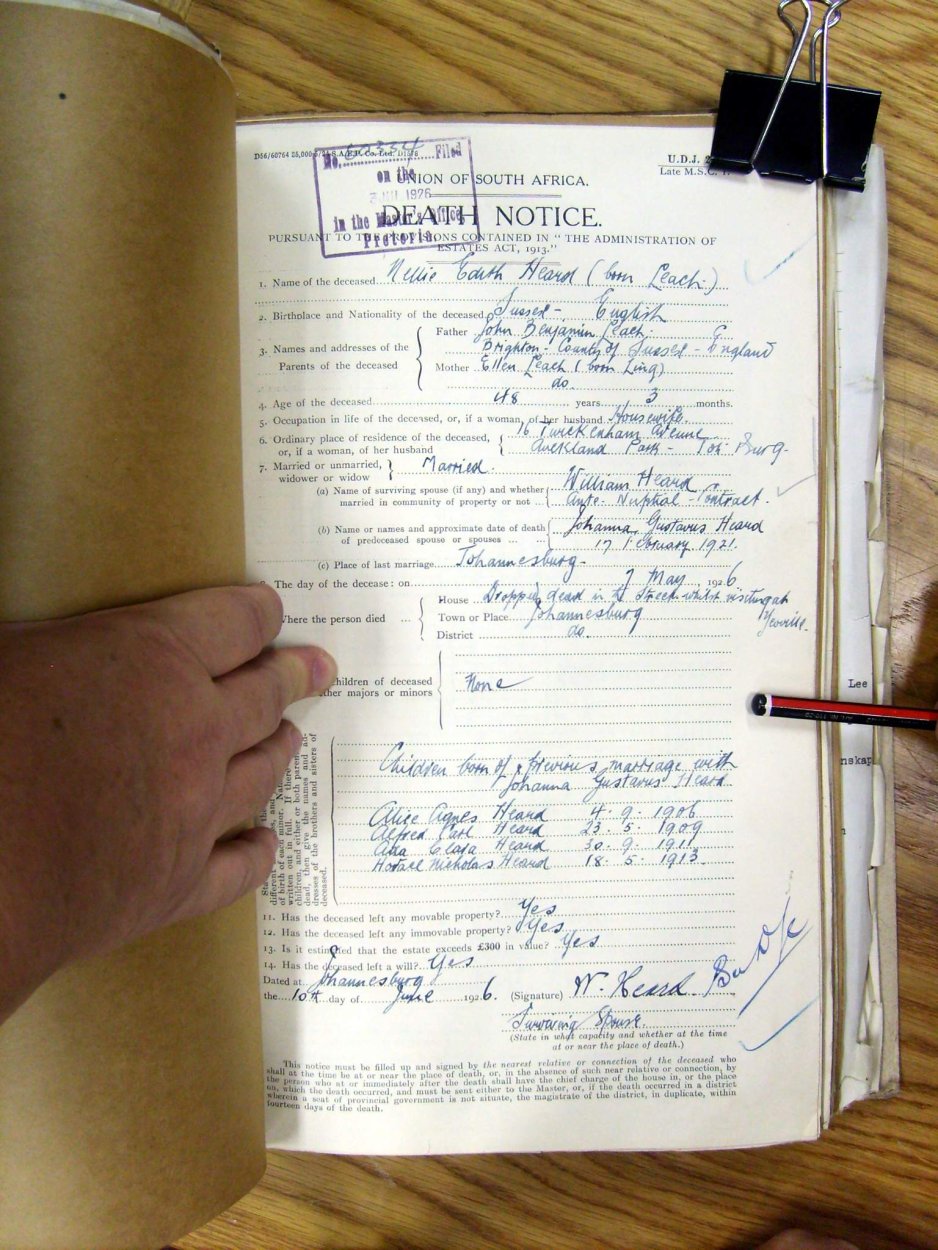 D56/60764 25,000
U.D.J.
Late M.S.C.
No. Filed
on the
1926
in the Master's Office,
Pretoria.
UNION OF SOUTH AFRICA.
DEATH NOTICE.
PURSUANT TO THE PROVISIONS CONTAINED IN "THE ADMINISTRATION OF
ESTATES ACT, 1913."
1. Name of the deceased Nellie Edith Heard (born Leach)
2. Birthplace and Nationality of the deceased Sussex - English
3. Names and addresses of the Parents of the deceased
Father John Benjamin Leach.
Brighton - County of Sussex - England
Mother Ellen Leach (born Ling)
do.
4. Age of the deceased 48 years 3 months.
5. Occupation in life of the deceased, or, if a woman, of her husband Housewife.
6. Ordinary place of residence of the deceased, or, if a woman, of her husband
16 Twickenham Avenue
Auckland Park - Joh: Burg-
7. Married or unmarried, widower or widow Married.
(a) Name of surviving spouse (if any) and whether married in community of property or not
William Heard
Ante-Nuptial-Contract.
(b) Name or names and approximate date of death of predeceased spouse or spouses
Johanna Gustavus Heard
17 February 1921.
(c) Place of last marriage Johannesburg-
The day of the decease: on 7 May 1926
Where the person died
House Dropped dead in Street whilst visiting at
Yeoville.
Town or Place Johannesburg
District do.
hildren of deceased
ther majors or minors
None
Children born of previous marriage with
Johanna Gustavus Heard
Alice Agnes Heard 4-9-1906
Alfred Carl Heard 23.5.1909
Ada Clara Heard 30-9-1911
Horace Nicholas Heard 18-5-1913.
of birth of each minor.
written out in full. If there
children, and either or both paren
dead, then give the names and ad-
dresses of the brothers and sisters of
deceased.
11. Has the deceased left any movable property? Yes
12. Has the deceased left any immovable property? Yes
13. Is it estimated that the estate exceeds £300 in value? Yes
14. Has the deceased left a will? Yes
Dated at Johannesburg
the 10th day of June 1926. (Signature) W. Heard
Surviving Spouse.
(State in what capacity and whether at the time
at or near the place of death.)
This notice must be filled up and signed by the nearest relative or connection of the deceased who
shall at the time be at or near the place of death, or, in the absence of such near relative or connection, by
the person who at or immediately after the death shall have the chief charge of the house in, or the place
on, which the death occurred, and must be sent either to the Master, or, if the death occurred in a district
wherein a seat of provincial government is not situate, the magistrate of the district, in duplicate, within
fourteen days of the death.
Lee
nskap